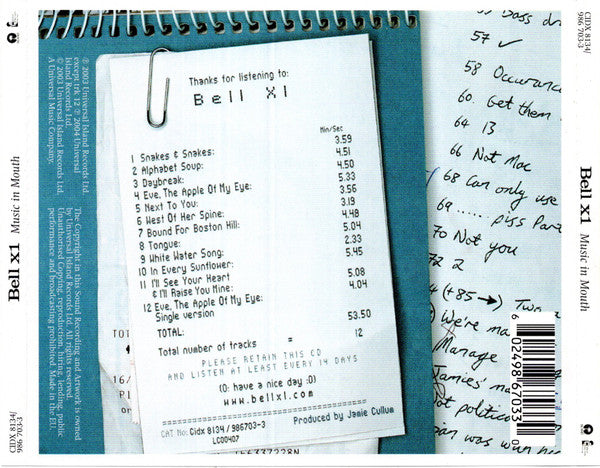 CIDX 8134/
986 703-3
Bell X1 Music in Mouth
℗ 2003 Universal Island Records Ltd.
except trk 12 ℗ 2004 Universal
Island Records Ltd.
© 2003 Universal Island Records Ltd.
A Universal Music Company.
The Copyright in this Sound Recording and Artwork is owned
by Universal Island Records Ltd. All rights reserved.
Unauthorised Copying, reproduction, hiring, lending, public
performance and broadcasting prohibited. Made in the EU.
Thanks for listening to:
Bell X1
Min/Sec
1 Snakes & Snakes: 3.59
2 Alphabet Soup: 4.51
3 Daybreak: 4.50
4 Eve, The Apple Of My Eye: 5.33
5 Next To You: 3.56
6 West Of Her Spine: 3.19
7 Bound For Boston Hill: 4.48
8 Tongue: 5.04
9 White Water Song: 2.33
10 In Every Sunflower: 5.45
11 I'll See Your Heart
& I'll Raise You Mine: 5.08
12 Eve, The Apple Of My Eye:
Single version 4.04
TOTAL: 53.50
Total number of tracks = 12
PLEASE RETAIN THIS CD
AND LISTEN AT LEAST EVERY 14 DAYS
(0: have a nice day :0)
www.bellx1.com
CAT No: Cidx 8134 / 986703-3 Produced by Jamie Cullum
LC00407
TOT
16/
57 ✓
58 Occurance
60. Get them
64 13
66 Not Mac
68 Can only use
69 ...... piss
70 Not you
72 2
(+85 →) Two
We're ma
Manage
Jamies' ma
not politica
6 02498 67033 0
CIDX 8134/
986 703-3
Bell X1 Music in Mouth